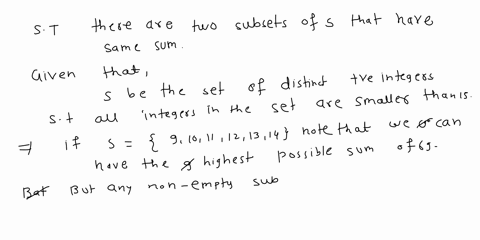 S.T there are two subsets of s that have
same sum.
Given that,
s be the set of distinct +ve integers
s.t all integers in the set are smaller than 15.
⇒ if s = { 9, 10, 11, 12, 13, 14} note that we can
have the highest possible sum of 69.
But any non-empty sub